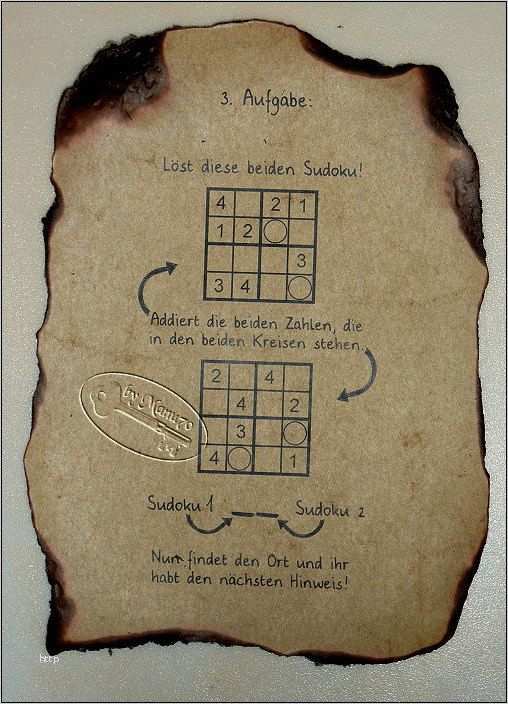 3. Aufgabe:
Löst diese beiden Sudoku!
4 2 1
1 2
3
3 4
Addiert die beiden Zahlen, die
in den beiden Kreisen stehen.
2 4
4 2
3
4 1
by Manu70
Sudoku 1 __ __ Sudoku 2
Nun findet den Ort und ihr
habt den nächsten Hinweis!
http